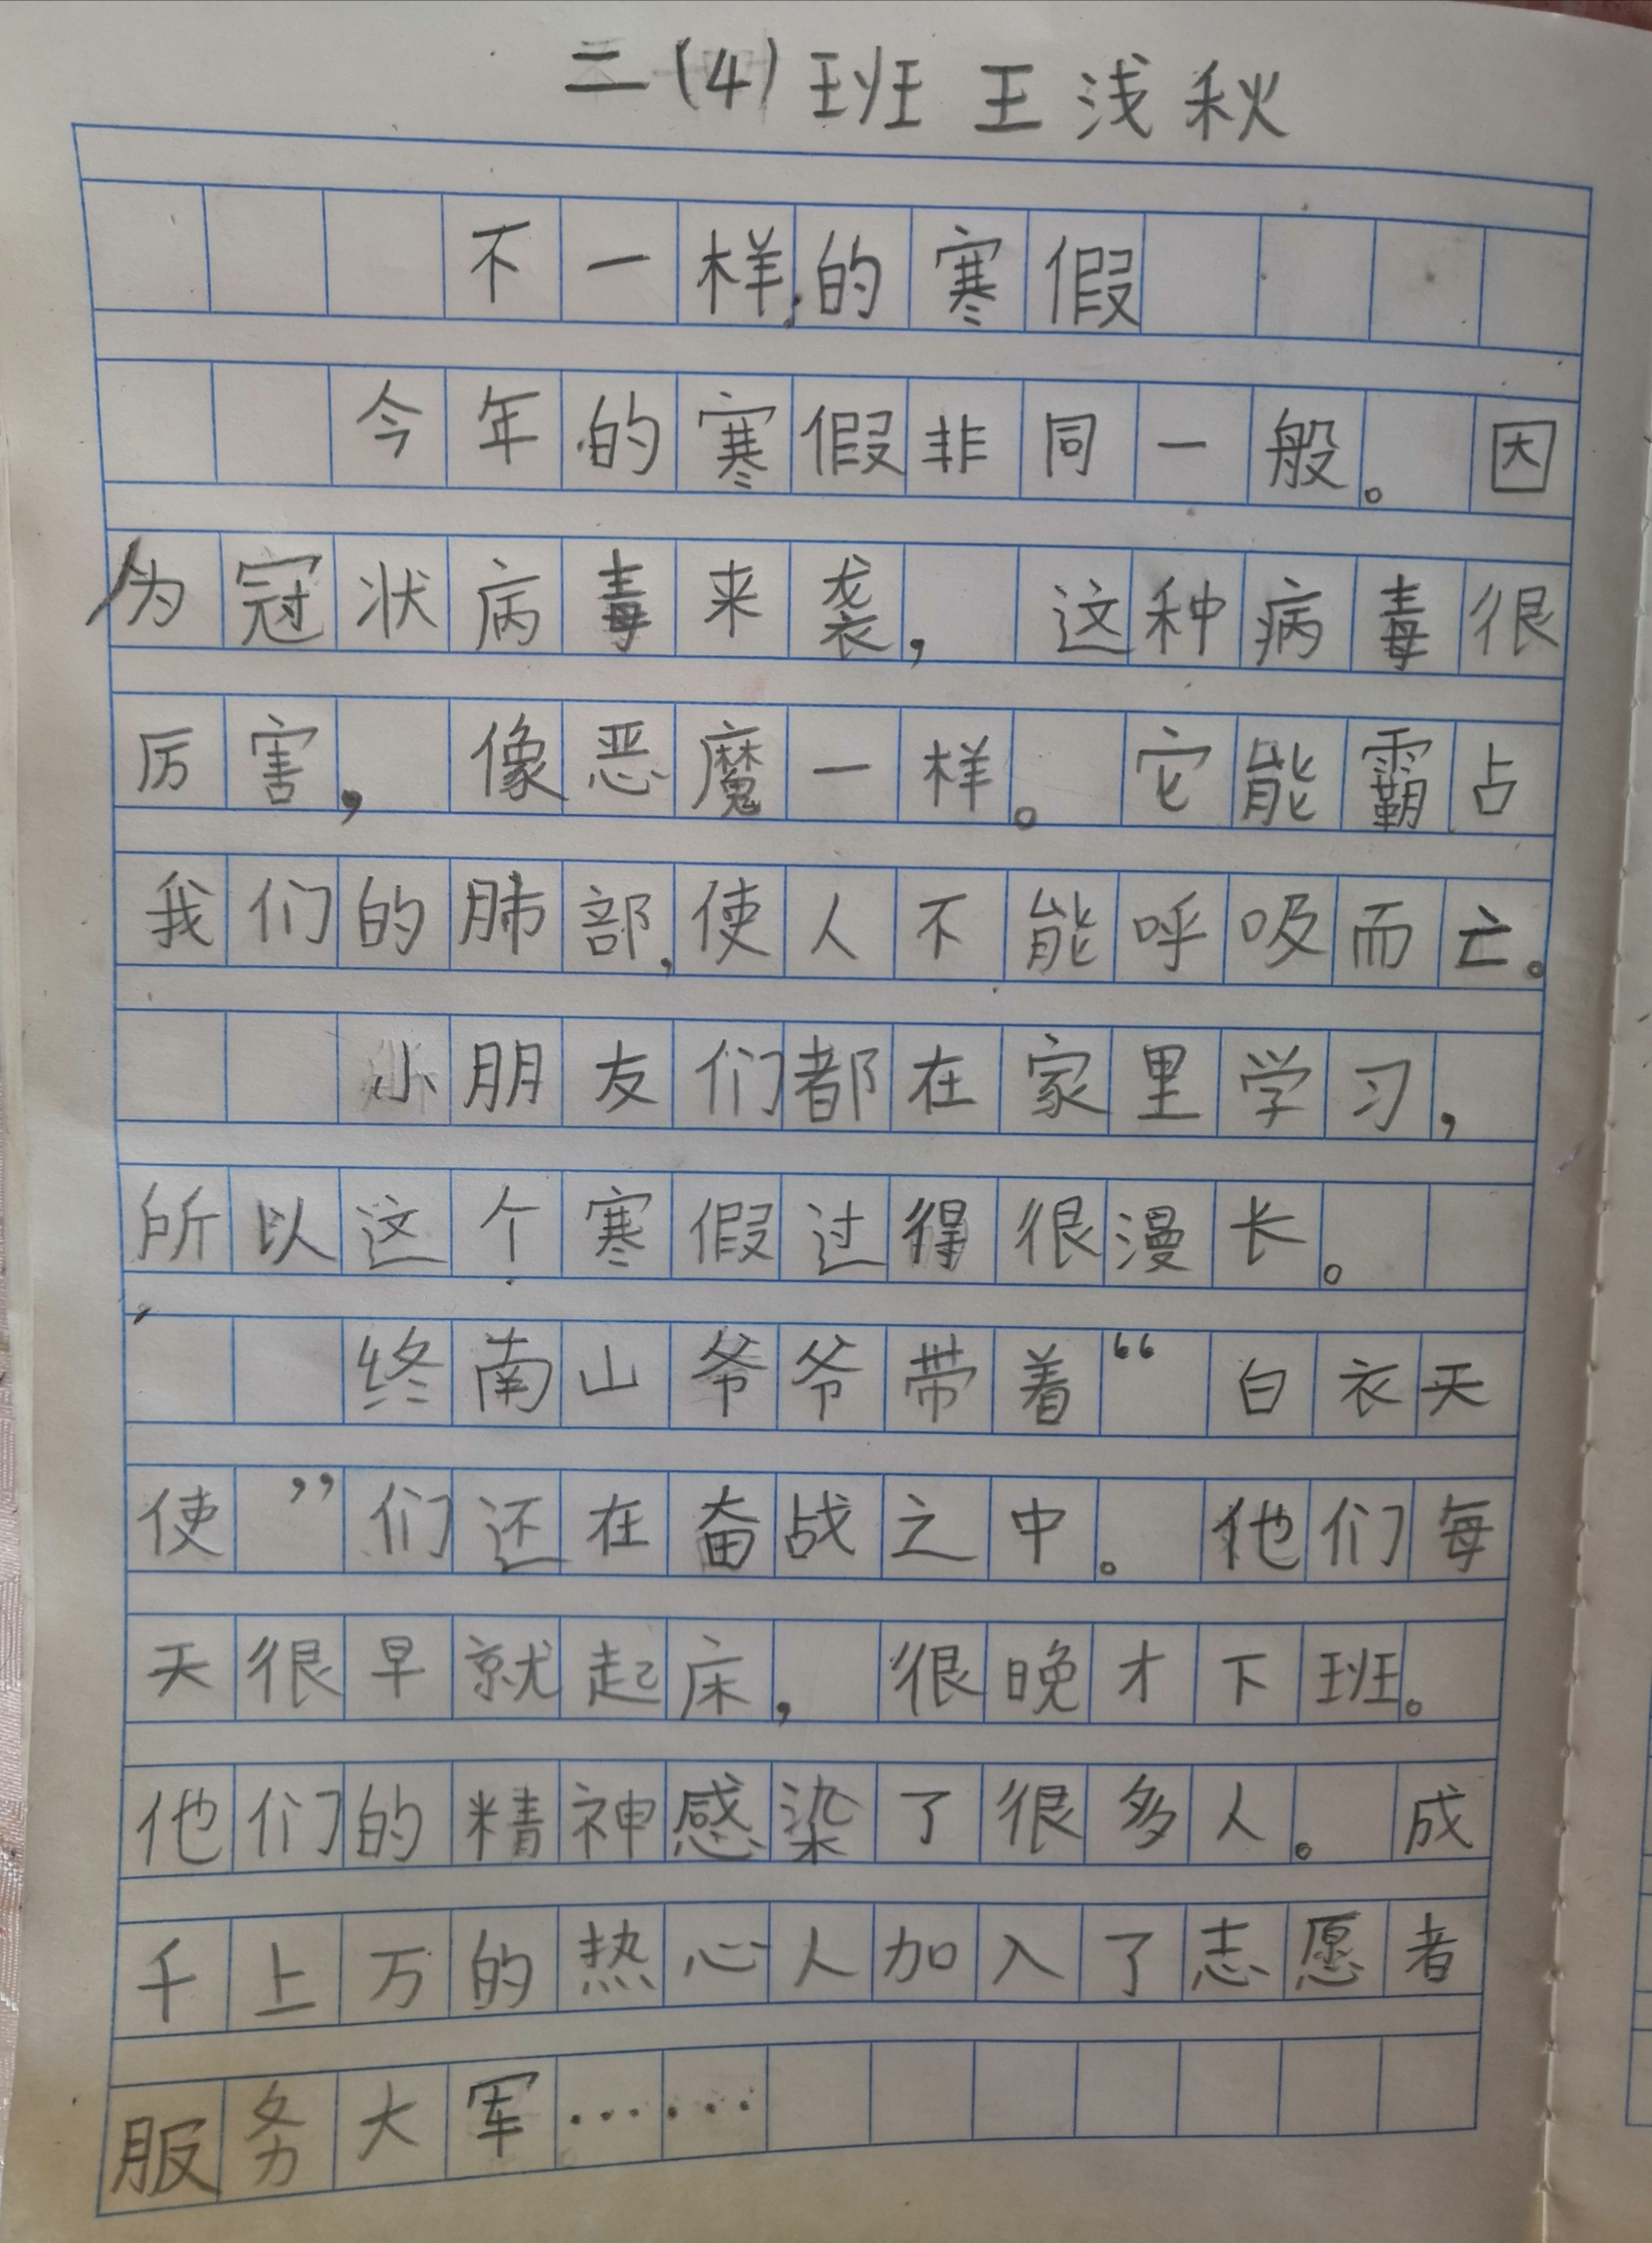 二(4)班 王浅秋
不一样的寒假
今年的寒假非同一般。因
为冠状病毒来袭，这种病毒很
厉害，像恶魔一样。它能霸占
我们的肺部，使人不能呼吸而亡。
小朋友们都在家里学习，
所以这个寒假过得很漫长。
终南山爷爷带着“白衣天
使”们还在奋战之中。他们每
天很早就起床，很晚才下班。
他们的精神感染了很多人。成
千上万的热心人加入了志愿者
服务大军……